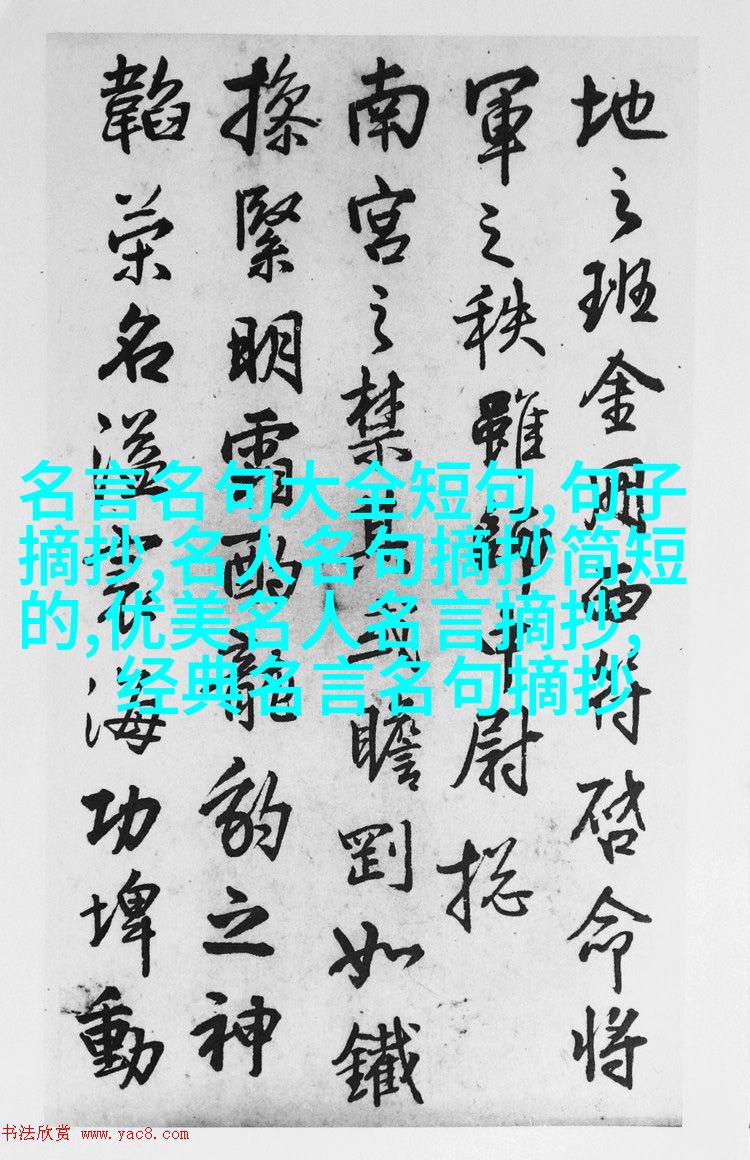 地之班金将啓命将
軍之秩雖中尉揔
南宫之禁瞻如鐵
操緊明霜酌龍豹之神
韜榮名溢海功埤動
名言名句大全短句,句子
摘抄,名人名句摘抄简短
的,优美名人名言摘抄,
经典名言名句摘抄
书法欣赏 www.yac8.com